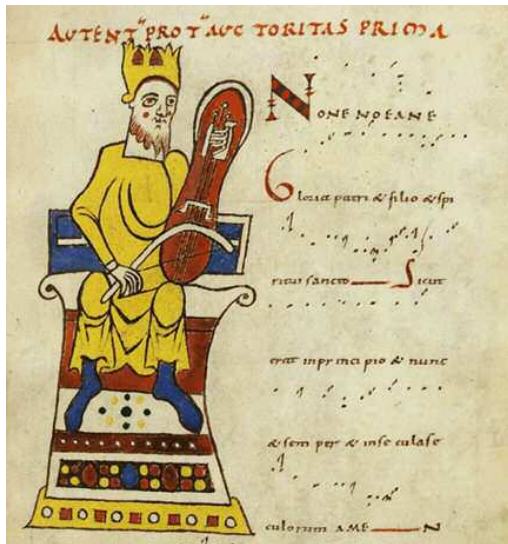 AVTENT᾽ PROT᾽ AVC TORITAS PRIMA
NONE NOEANE
Gloria patri & filio & spi
ritui sancto Sicut
erat inprincipio & nunc
& sem per & inse culase
culorum AMEN